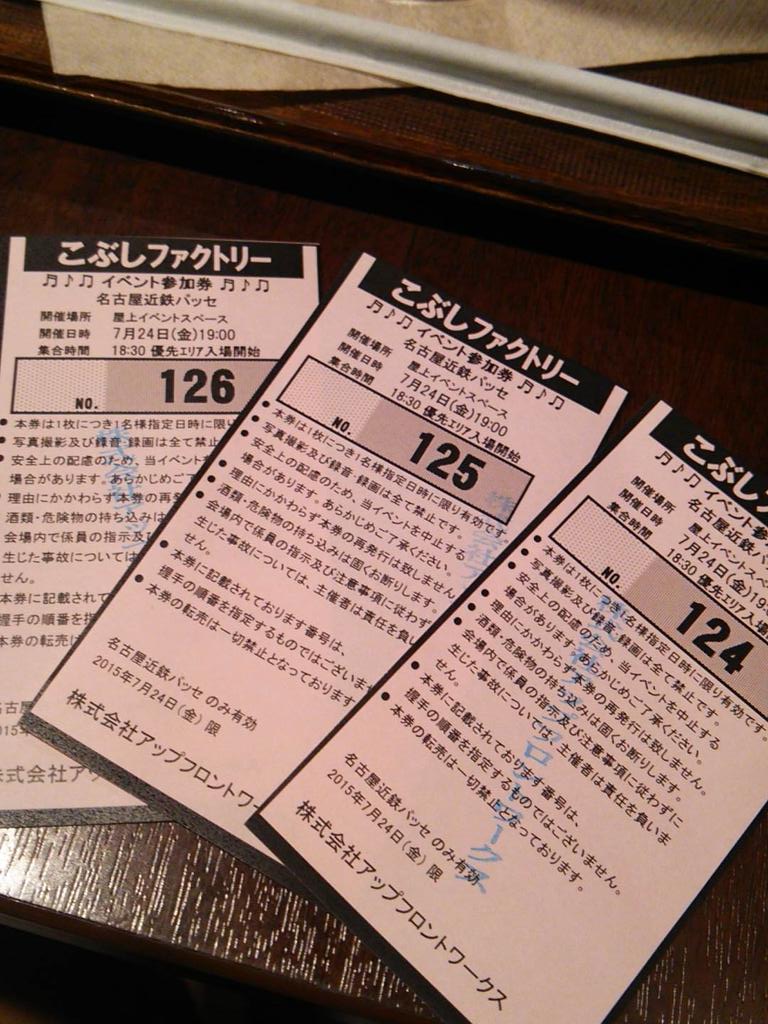 こぶしファクトリー
♫♪♫ イベント参加券 ♫♪♫
名古屋近鉄パッセ
開催場所 屋上イベントスペース
開催日時 7月24日(金)19:00
集合時間 18:30 優先エリア入場開始
NO. 126
● 本券は1枚につき1名様指定日時に限り
● 写真撮影及び録音・録画は全て禁止
● 安全上の配慮のため、当イベント
場合があります。あらかじめご了
● 理由にかかわらず本券の再発
酒類・危険物の持ち込みは
会場内で係員の指示及び
生じた事故については
せん。
本券に記載されて
握手の順番を指
本券の転売は
株式会社アッ
こぶしファクトリー
♫♪♫ イベント参加券 ♫♪♫
名古屋近鉄パッセ
開催場所 屋上イベントスペース
開催日時 7月24日(金)19:00
集合時間 18:30 優先エリア入場開始
NO. 125
● 本券は1枚につき1名様指定日時に限り有効です。
● 写真撮影及び録音・録画は全て禁止です。
● 安全上の配慮のため、当イベントを中止する
場合があります。あらかじめご了承ください。
● 理由にかかわらず本券の再発行は致しません。
● 酒類・危険物の持ち込みは固くお断りします。
● 会場内で係員の指示及び注意事項に従わず
生じた事故については、主催者は責任を負い
せん。
● 本券に記載されております番号は、
握手の順番を指定するものではございま
● 本券の転売は一切禁止となっております
名古屋近鉄パッセ のみ有効
2015年7月24日(金) 限
株式会社アップフロントワー
こぶし
♫♪♫ イベント参
名古屋近鉄パッセ
開催場所 屋上イベントスペー
開催日時 7月24日(金)19
集合時間 18:30 優先エリア入場
NO. 124
● 本券は1枚につき1名様指定日時に限り有効です。
● 写真撮影及び録音・録画は全て禁止です。
● 安全上の配慮のため、当イベントを中止する
場合があります。あらかじめご了承ください。
● 理由にかかわらず本券の再発行は致しません。
● 酒類・危険物の持ち込みは固くお断りします。
● 会場内で係員の指示及び注意事項に従わずに
生じた事故については、主催者は責任を負いま
せん。
● 本券に記載されております番号は、
握手の順番を指定するものではございません。
● 本券の転売は一切禁止となっております。
名古屋近鉄パッセ のみ有効
2015年7月24日(金) 限
株式会社アップフロントワークス